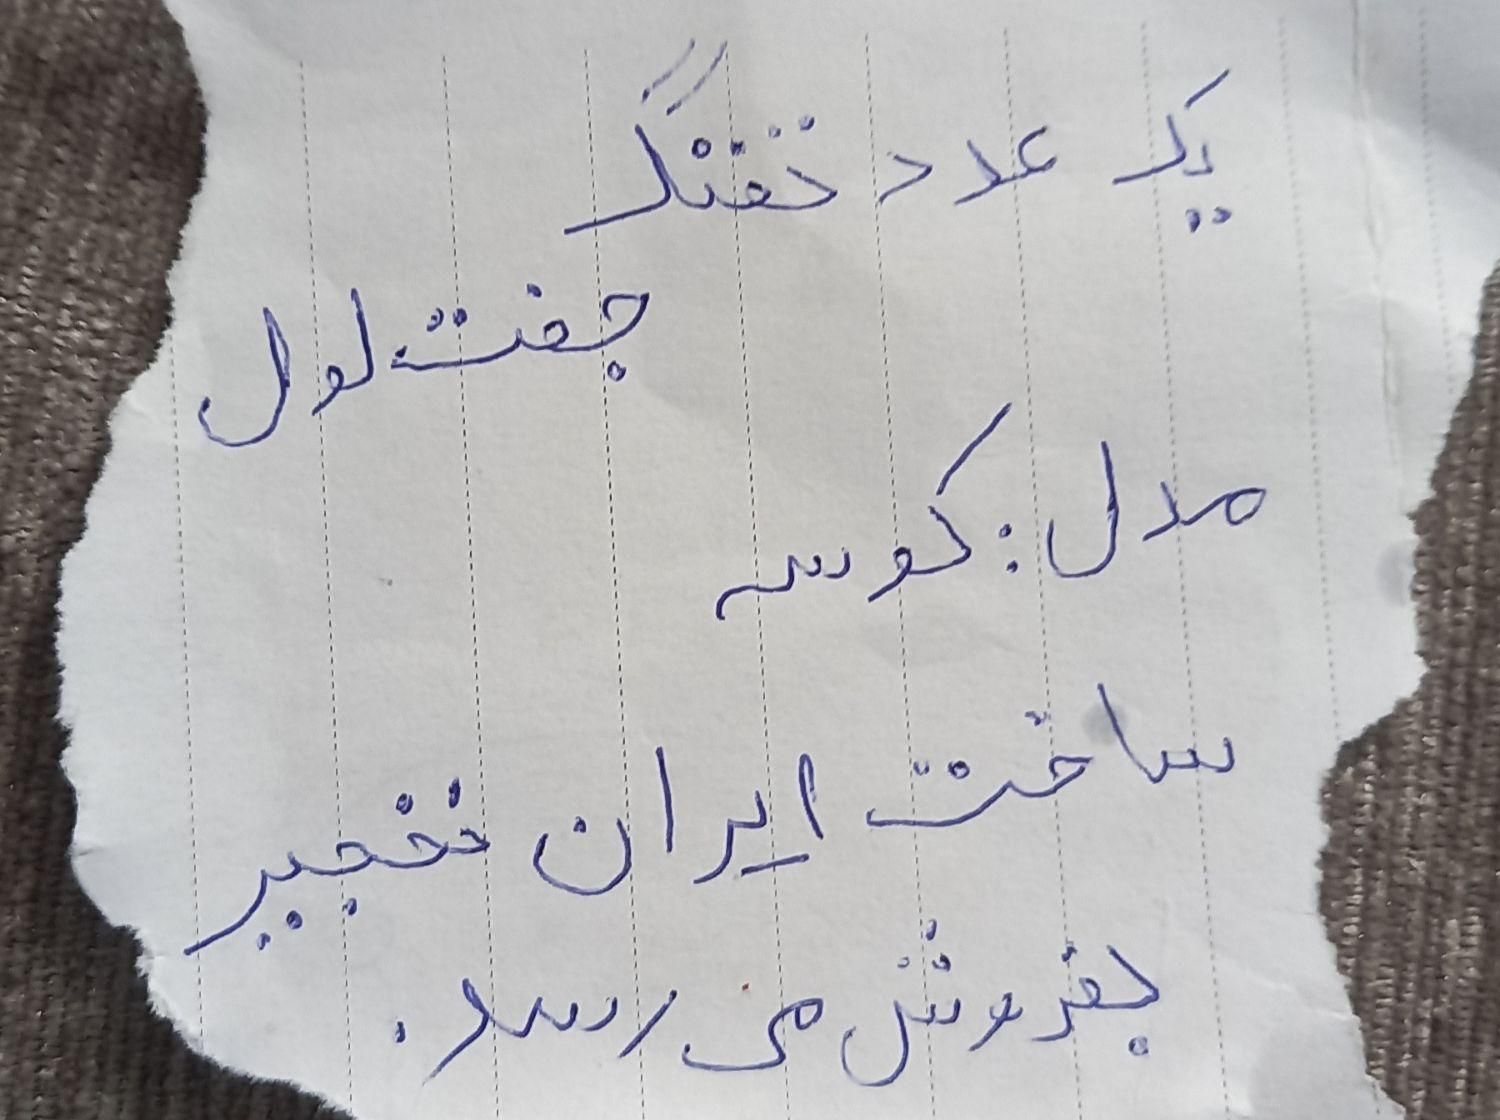 یک عدد تفنگ
جفت لول
مدل: کوسه
ساخت ایران نخجیر
بفروش می رسد.